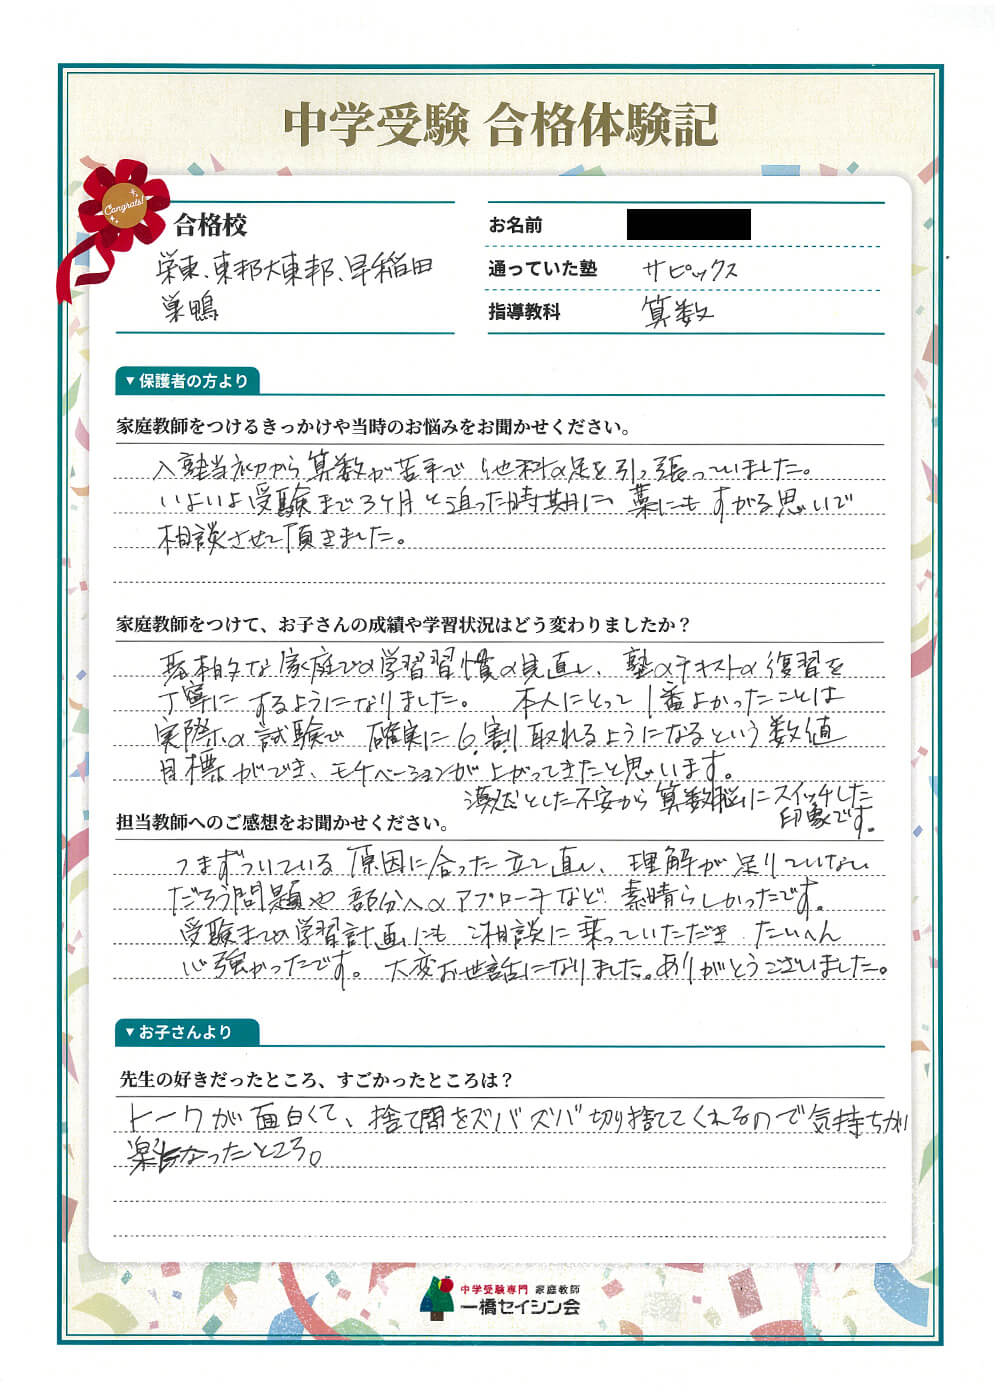 中学受験 合格体験記
Congrats!
合格校
栄東、東邦大東邦、早稲田
巣鴨
お名前
通っていた塾 サピックス
指導教科 算数
▼保護者の方より
家庭教師をつけるきっかけや当時のお悩みをお聞かせください。
入塾当初から算数が苦手で他科の足を引っ張っていました。
いよいよ受験まで3ヶ月と迫った時期に、藁にもすがる思いで
相談させて頂きました。
家庭教師をつけて、お子さんの成績や学習状況はどう変わりましたか？
基本的な家庭での学習習慣の見直し、塾のテキストの復習を
丁寧にするようになりました。 本人にとって1番よかったことは
実際の試験で確実に6割取れるようになるという数値
目標ができ、モチベーションが上がってきたと思います。
漠然とした不安から算数脳にスイッチした
印象です。
担当教師へのご感想をお聞かせください。
つまずいている原因に合った立て直し、理解が足りていない
だろう問題や部分へのアプローチなど素晴らしかったです。
受験までの学習計画にもご相談に乗っていただきたいへん
心強かったです。大変お世話になりました。ありがとうございました。
▼お子さんより
先生の好きだったところ、すごかったところは？
トークが面白くて、捨て問をズバズバ切り捨ててくれるので気持ちが
楽になったところ。
中学受験専門 家庭教師
一橋セイシン会